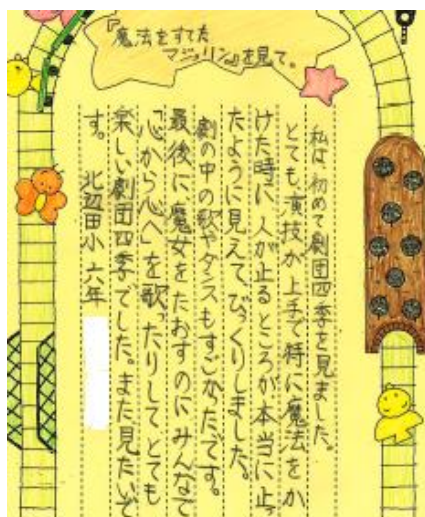 『魔法をすてた
マジョリン』を見て。
私は、初めて劇団四季を見ました。
とても演技が上手で特に魔法をか
けた時に人が止るところが本当に止っ
たように見えて、びっくりしました。
劇の中の歌やダンスもすごかったです。
最後に魔女をたおすのにみんなで
「心から心へ」を歌ったりしてとても
楽しい劇団四季でした。また見たいで
す。 北辺田小 六年